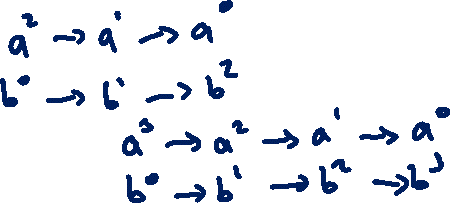 a² → a¹ → a⁰
b⁰ → b¹ → b²
a³ → a² → a¹ → a⁰
b⁰ → b¹ → b² → b³